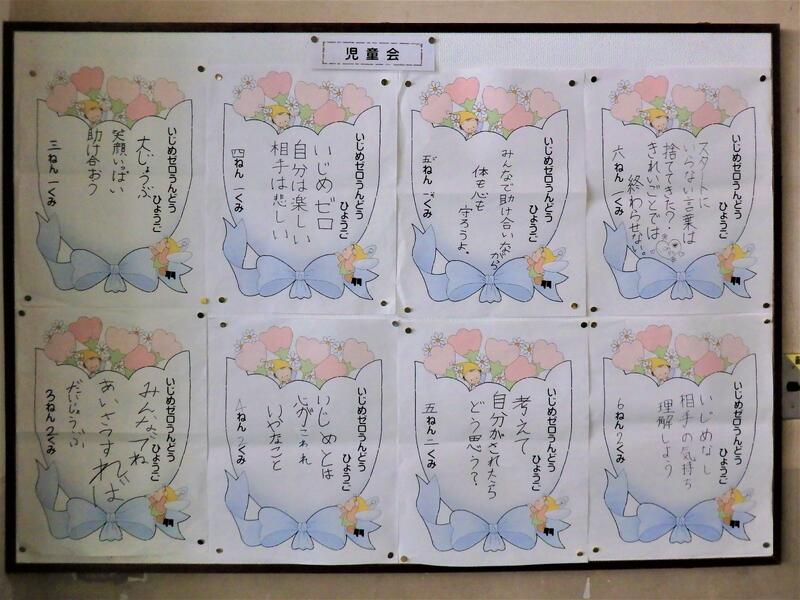 児童会
いじめゼロうんどう
ひょうご
スタートに
いらない言葉は
捨ててきた？
きれいごとでは
終わらせない。
六ねん 一くみ
いじめゼロうんどう
ひょうご
みんなで助け合いながら
体も心も
守ろうよ。
五ねん 一くみ
いじめゼロうんどう
ひょうご
いじめゼロ
自分は楽しい
相手は悲しい
四ねん 一くみ
いじめゼロうんどう
ひょうご
大じょうぶ
笑顔いっぱい
助け合おう
三ねん 一くみ
いじめゼロうんどう
ひょうご
いじめなし
相手の気持ち
理解しよう
6ねん 2くみ
いじめゼロうんどう
ひょうご
考えて
自分がされたら
どう思う？
五ねん 二くみ
いじめゼロうんどう
ひょうご
いじめとは
心がこわれ
いやなこと
4ねん 2くみ
いじめゼロうんどう
ひょうご
みんなでね
あいさつすれば
だいじょうぶ
3ねん 2くみ